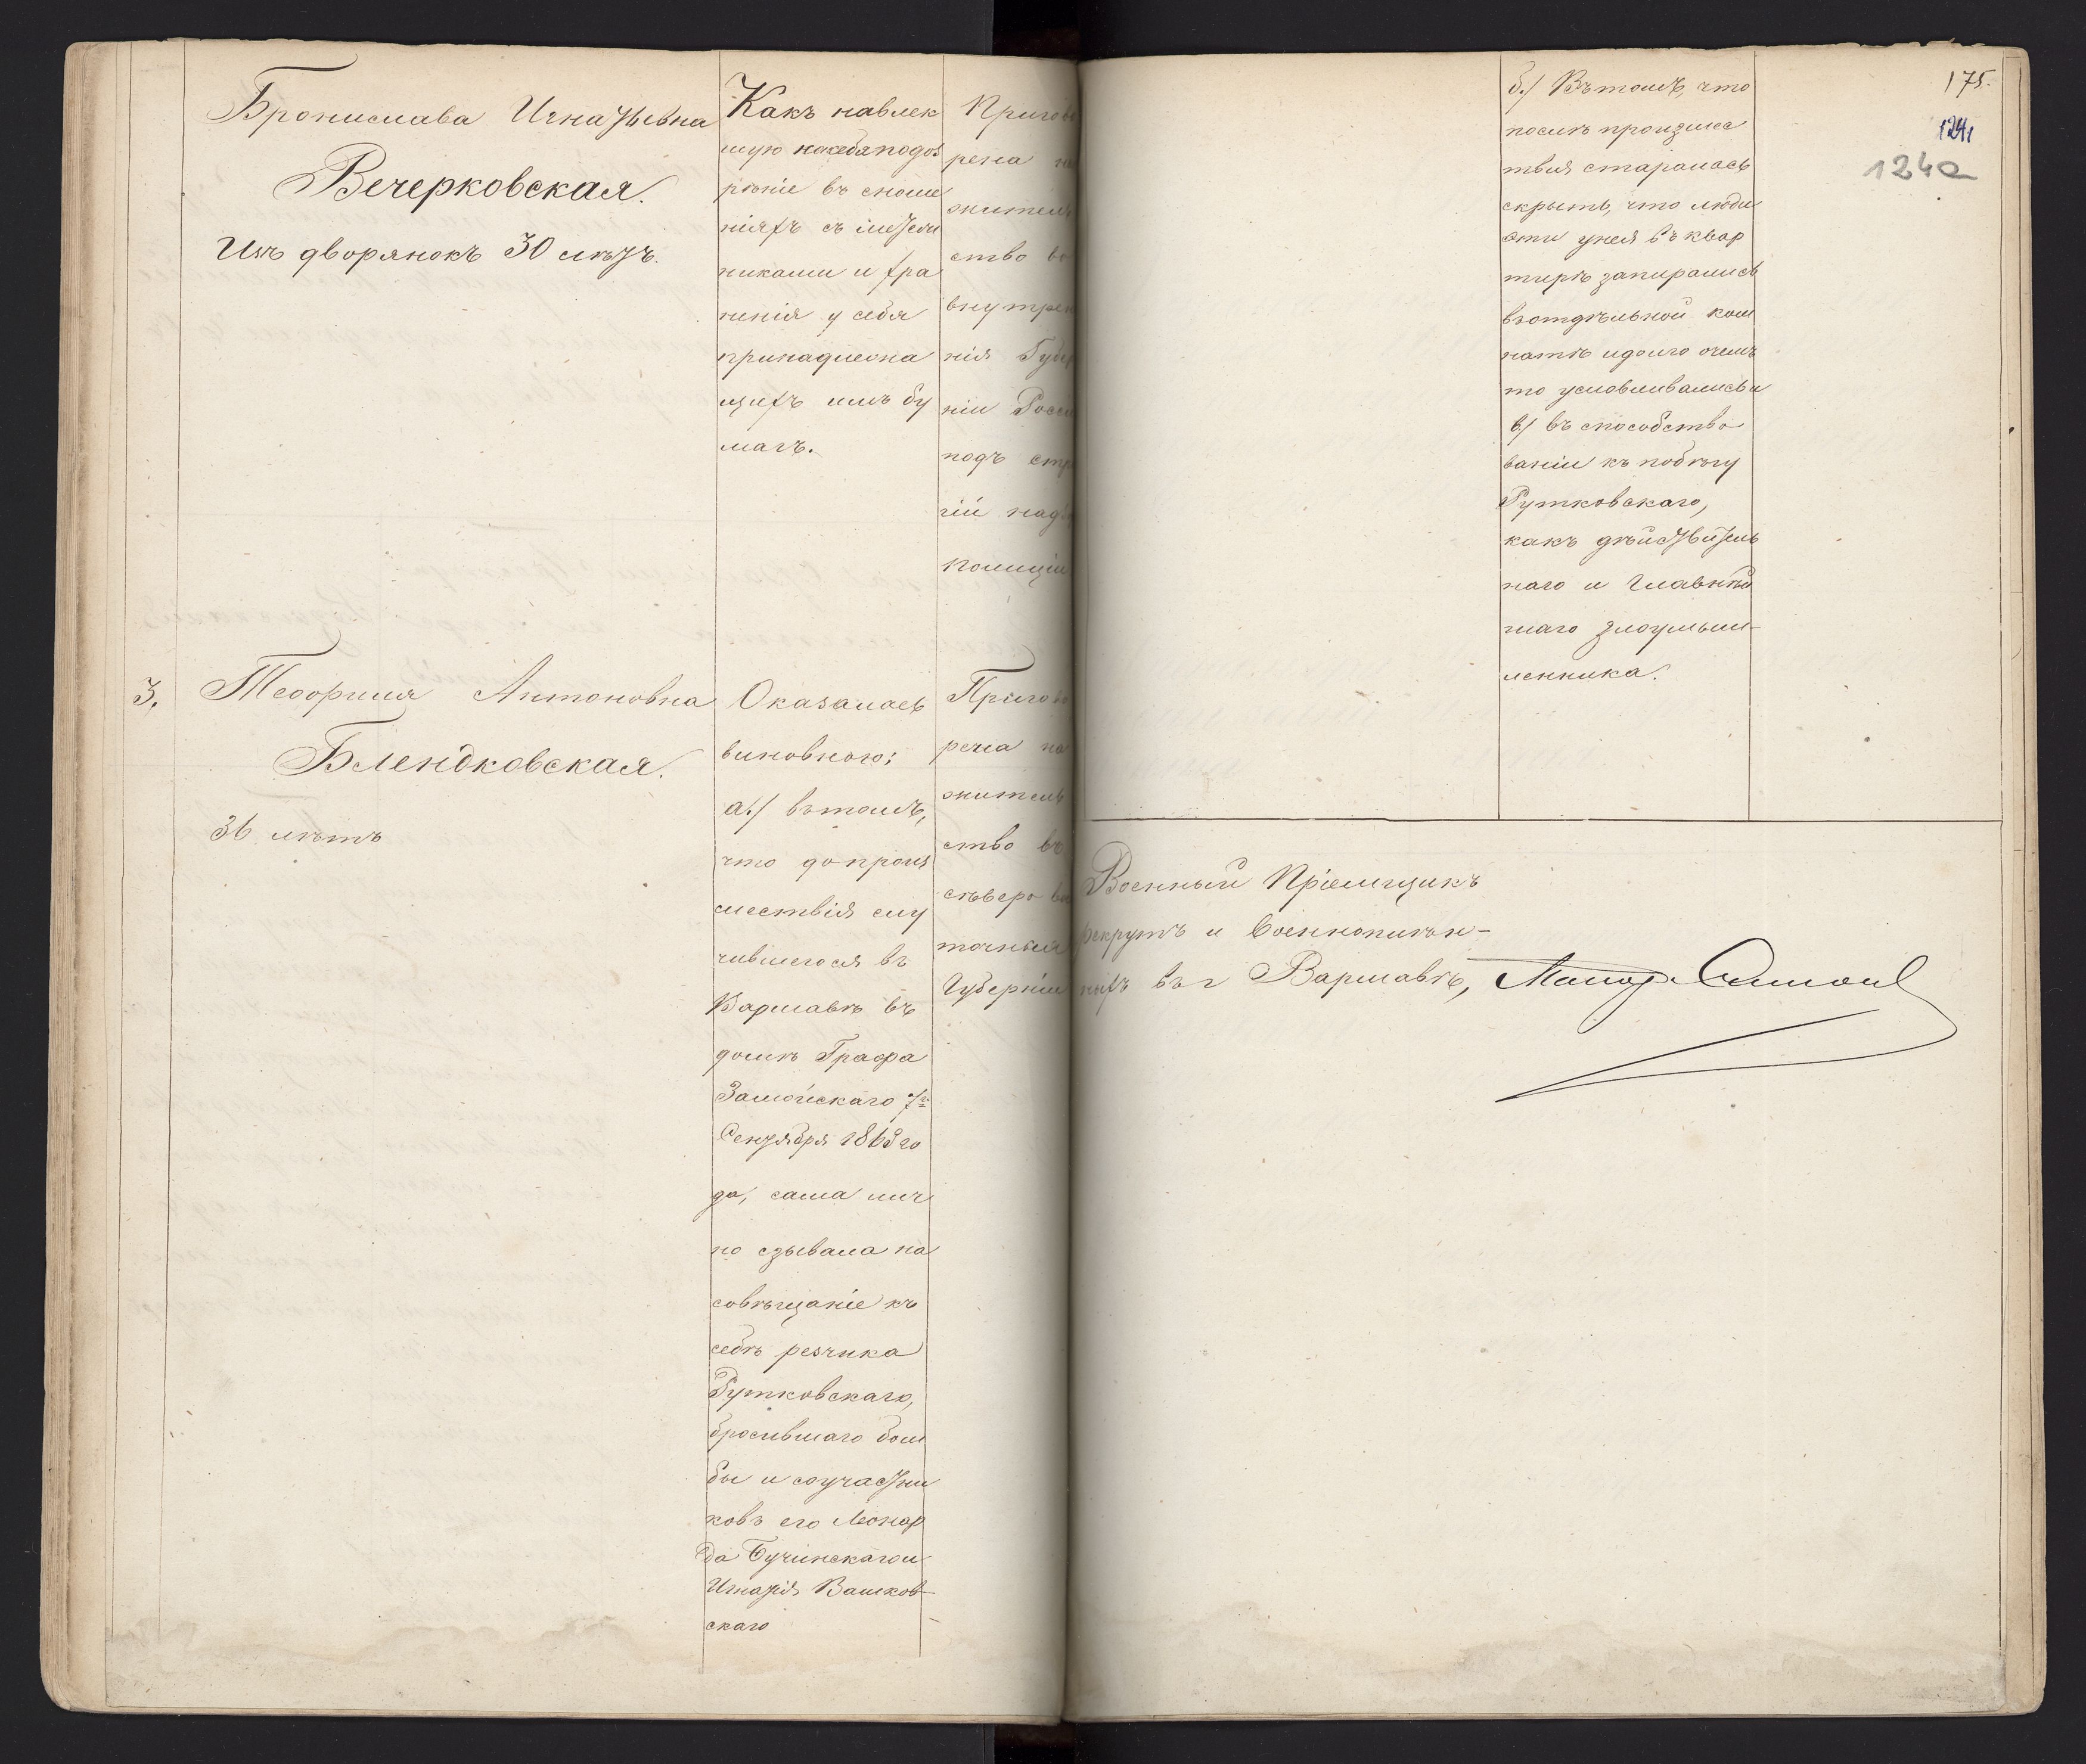 Бронислава Игнатьевна
Вечерковская.
Изъ дворянокъ 30 лѣтъ.
Какъ навлек
шую на себя подоз
рѣніе въ сноше
ніяхъ съ мятеж
никами и хра
ненія у себя
принадлежа
щихъ имъ бу
магъ.
Пригово
рена на
житель
ство во
внутрен
нія Губер
ніи Россіи
подъ стро
гій надзо
полиціи
3.
Теофиля Антоновна
Блендковская.
36 лѣтъ
Оказалась
виновною:
а./ въ томъ,
что до проис
шествія слу
чившегося въ
Варшавѣ въ
домѣ Графа
Замойскаго 7го
Сентября 1863 го
да, сама лич
но сзывала на
совѣщаніе къ
себѣ резчика
Рутковскаго,
бросившаго бом
бы и соучастни
ковъ его Леонар
да Бучинскаго и
Игнатія Вашков-
скаго
Пригово
рена на
житель
ство въ
сѣверо вос
точныя
Губерніи
175.
124
124a
б./ Въ томъ, что
послѣ произшес
твія старалась
скрыть, что люди
эти у нея въ квар
тирѣ запирались
въ отдѣльной ком
натѣ и долго о чемъ
то условливались и
в/ въ способство
ваніи къ побѣгу
Рутковскаго,
какъ дѣйствитель
наго и главнѣй
шаго злоумыш-
ленника.
Военный Пріемщикъ
рекрутъ и военноплѣн-
ныхъ въ г Варшавѣ, Маіор